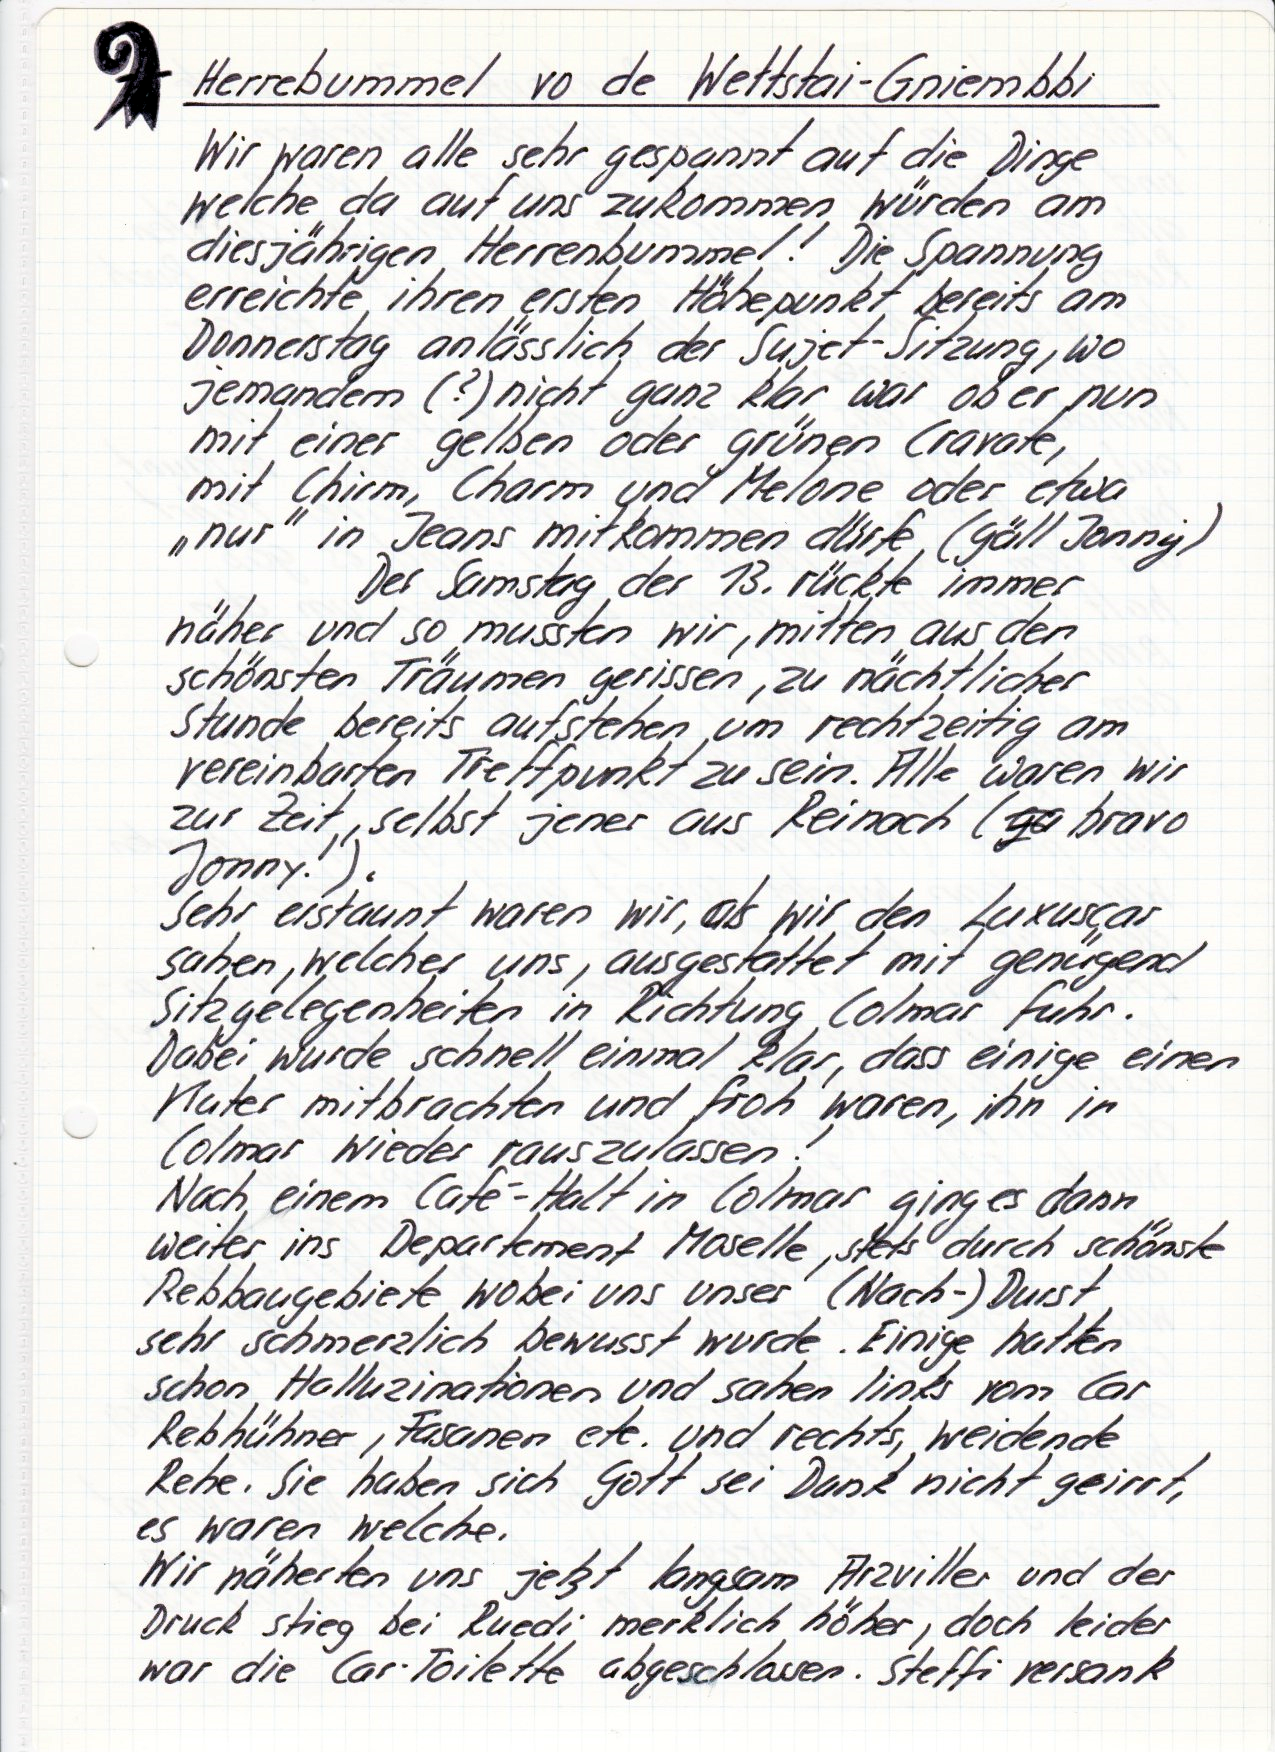 Herrebummel vo de Wettstai-Gniembbi
Wir waren alle sehr gespannt auf die Dinge
welche da auf uns zukommen würden am
diesjährigen Herrenbummel! Die Spannung
erreichte ihren ersten Höhepunkt bereits am
Donnerstag anlässlich der Sujet-Sitzung, wo
jemandem (?) nicht ganz klar war ob er nun
mit einer gelben oder grünen Cravate,
mit Chirm, Charm und Melone oder etwa
„nur" in Jeans mitkommen dürfe (gäll Jonny)
Der Samstag der 13. rückte immer
näher und so mussten wir, mitten aus den
schönsten Träumen gerissen, zu nächtlicher
Stunde bereits aufstehen um rechtzeitig am
vereinbarten Treffpunkt zu sein. Alle waren wir
zur Zeit, selbst jener aus Reinach (bravo
Jonny!").
Sehr erstaunt waren wir, als wir den Luxuscar
sahen, welcher uns, ausgestattet mit genügend
Sitzgelegenheiten in Richtung Colmar fuhr.
Dabei wurde schnell einmal klar, dass einige einen
Kater mitbrachten und froh waren, ihn in
Colmar wieder rauszulassen!
Nach einem Café-Halt in Colmar ging es dann
weiter ins Departement Moselle, stets durch schönste
Rebbaugebiete wobei uns unser (Nach-) Durst
sehr schmerzlich bewusst wurde. Einige hatten
schon Halluzinationen und sahen links vom Car
Rebhühner, Fasanen etc. und rechts, weidende
Rehe. Sie haben sich Gott sei Dank nicht geirrt,
es waren welche.
Wir näherten uns jetzt langsam Arzviller und der
Druck stieg bei Ruedi merklich höher, doch leider
war die Car-Toilette abgeschlossen. Steffi versank